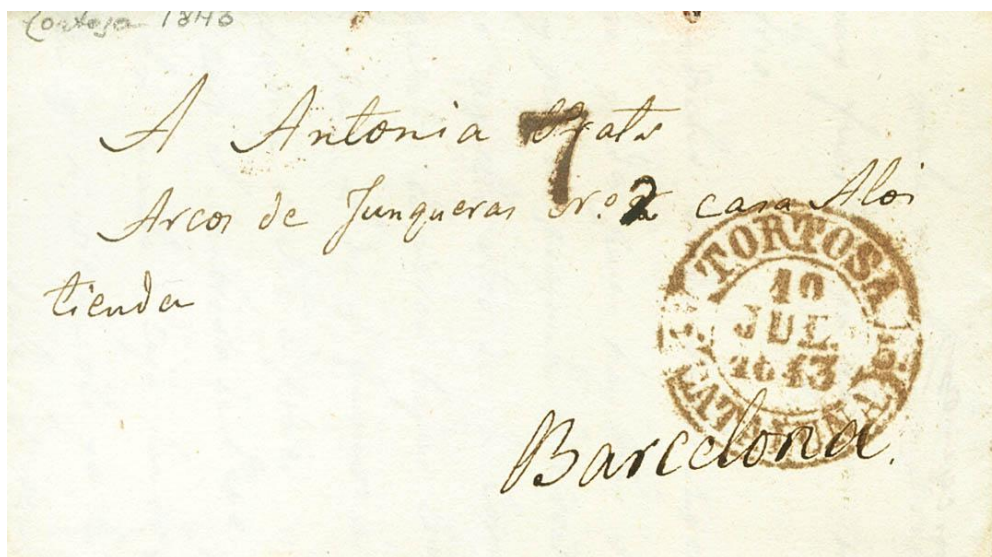 Tortosa 1843
A Antonia Prats
7
Arcos de Junqueras Nro. 2 casa Aloi
tienda
TORTOSA
19
JUL.
1843
CATALUÑA
Barcelona.